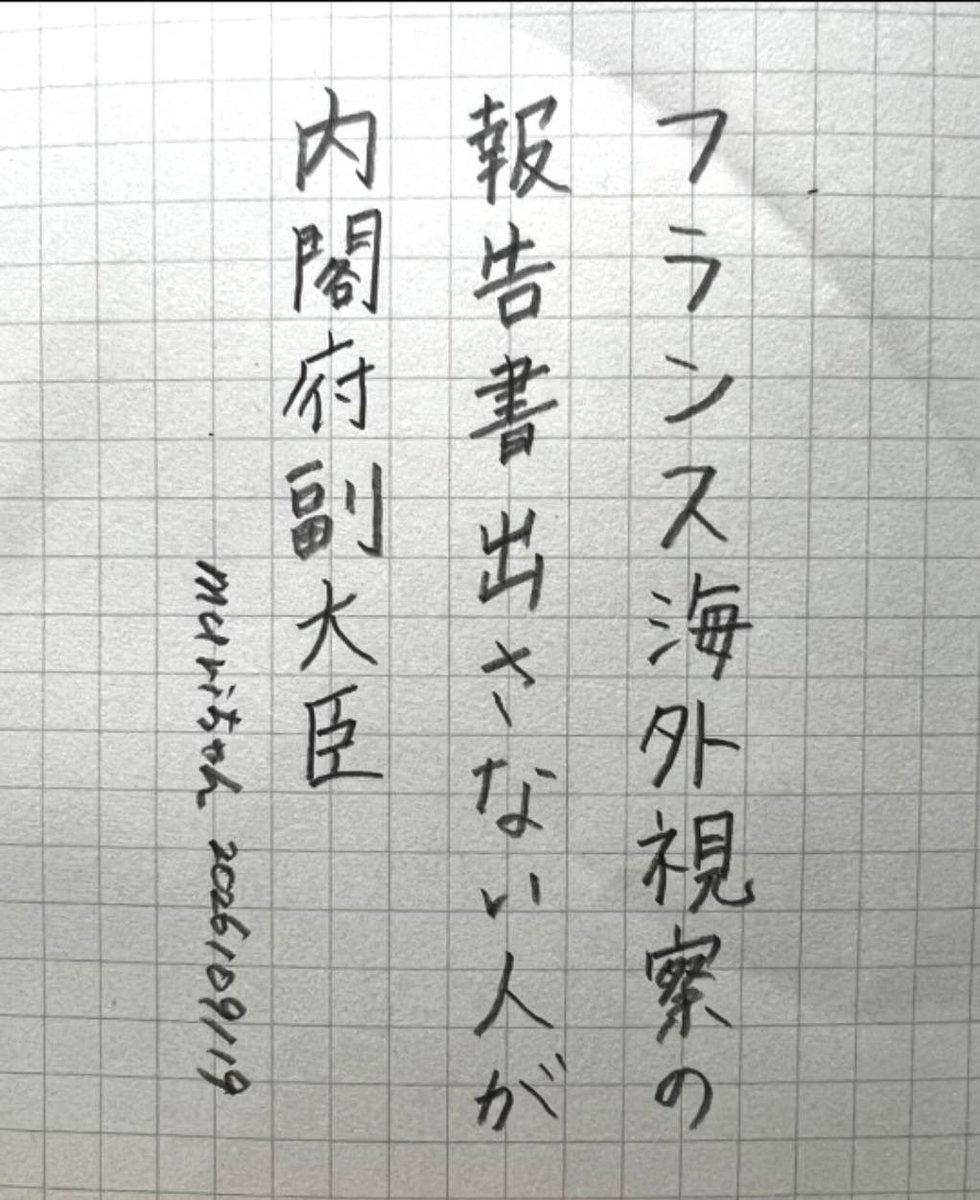 フランス海外視察の
報告書出さない人が
内閣府副大臣
murcちゃん 2026/09/19